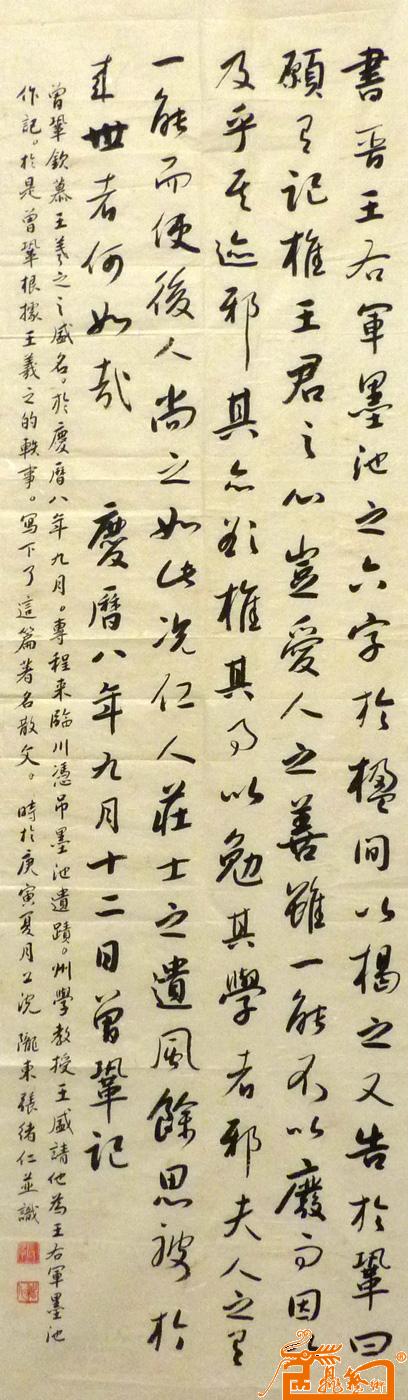 書晋王右軍墨池之六字於楹間以楬之又告於鞏曰
願有記推王君之心豈愛人之善雖一能不以廢而因以
及乎其迹邪其亦欲推其事以勉其學者邪夫人之有
一能而使後人尚之如此況仁人莊士之遺風餘思被於
来世者何如哉 慶曆八年九月十二日曾鞏記
曾鞏欽慕王羲之之盛名。於慶曆八年九月。專程来臨川憑吊墨池遺蹟。州學教授王盛請他為王右軍墨池
作記。於是曾鞏根據王羲之的軼事。寫下了這篇著名散文。時於庚寅夏月上浣 隴東張緒仁並識